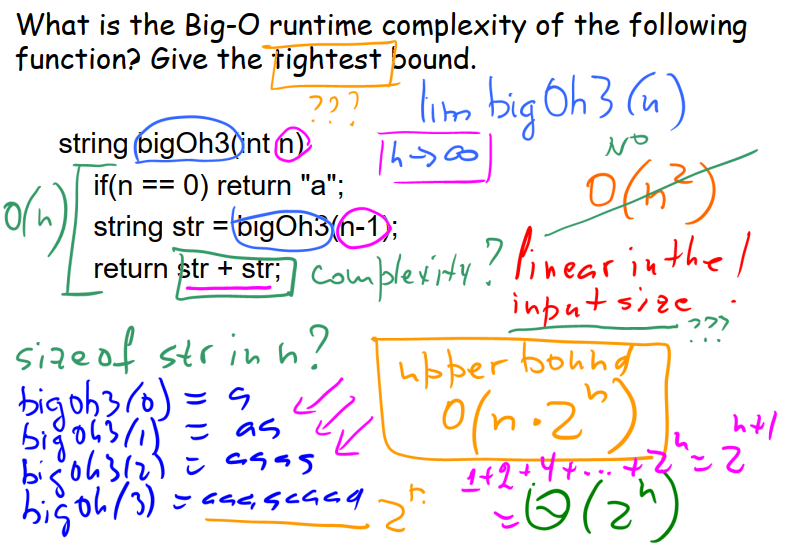 What is the Big-O runtime complexity of the following
function? Give the tightest bound.
???
lim bigOh3(n)
n→∞
string bigOh3(int n)
NO
O(n²)
if(n == 0) return "a";
O(n)
string str = bigOh3(n-1);
return str + str;
complexity?
linear in the
input size
???
size of str in n?
upper bound
O(n·2ⁿ)
bigoh3(0) = a
bigoh3(1) = aa
bigoh3(2) = aaaa
bigoh(3) = aaaaaaaa
2ⁿ
1+2+4+...+2ⁿ = 2ⁿ⁺¹
= Θ(2ⁿ)